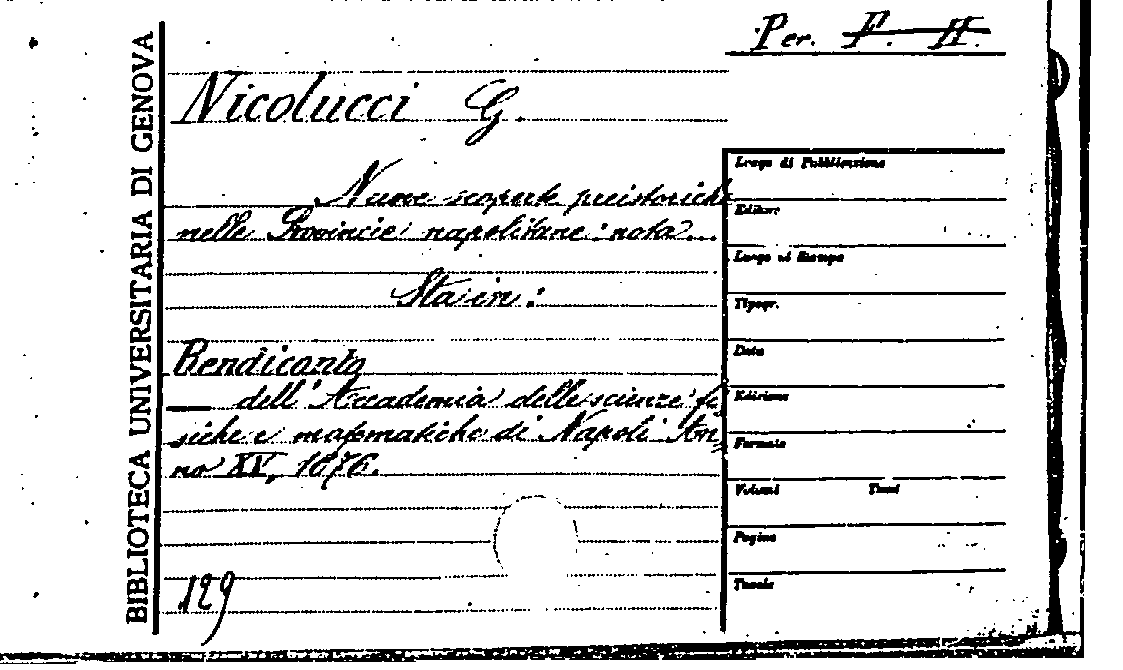 Per. F. II.
BIBLIOTECA UNIVERSITARIA DI GENOVA
Nicolucci G.
Nuove scoperte preistoriche
nelle Provincie napolitane: nota...
Sta in:
Rendiconto
dell'Accademia delle scienze fi-
siche e matematiche di Napoli An-
no XV, 1876.
129
Luogo di Pubblicazione
Editore
Luogo di Stampa
Tipogr.
Data
Edizione
Formato
Volumi Tomi
Pagine
Tavole